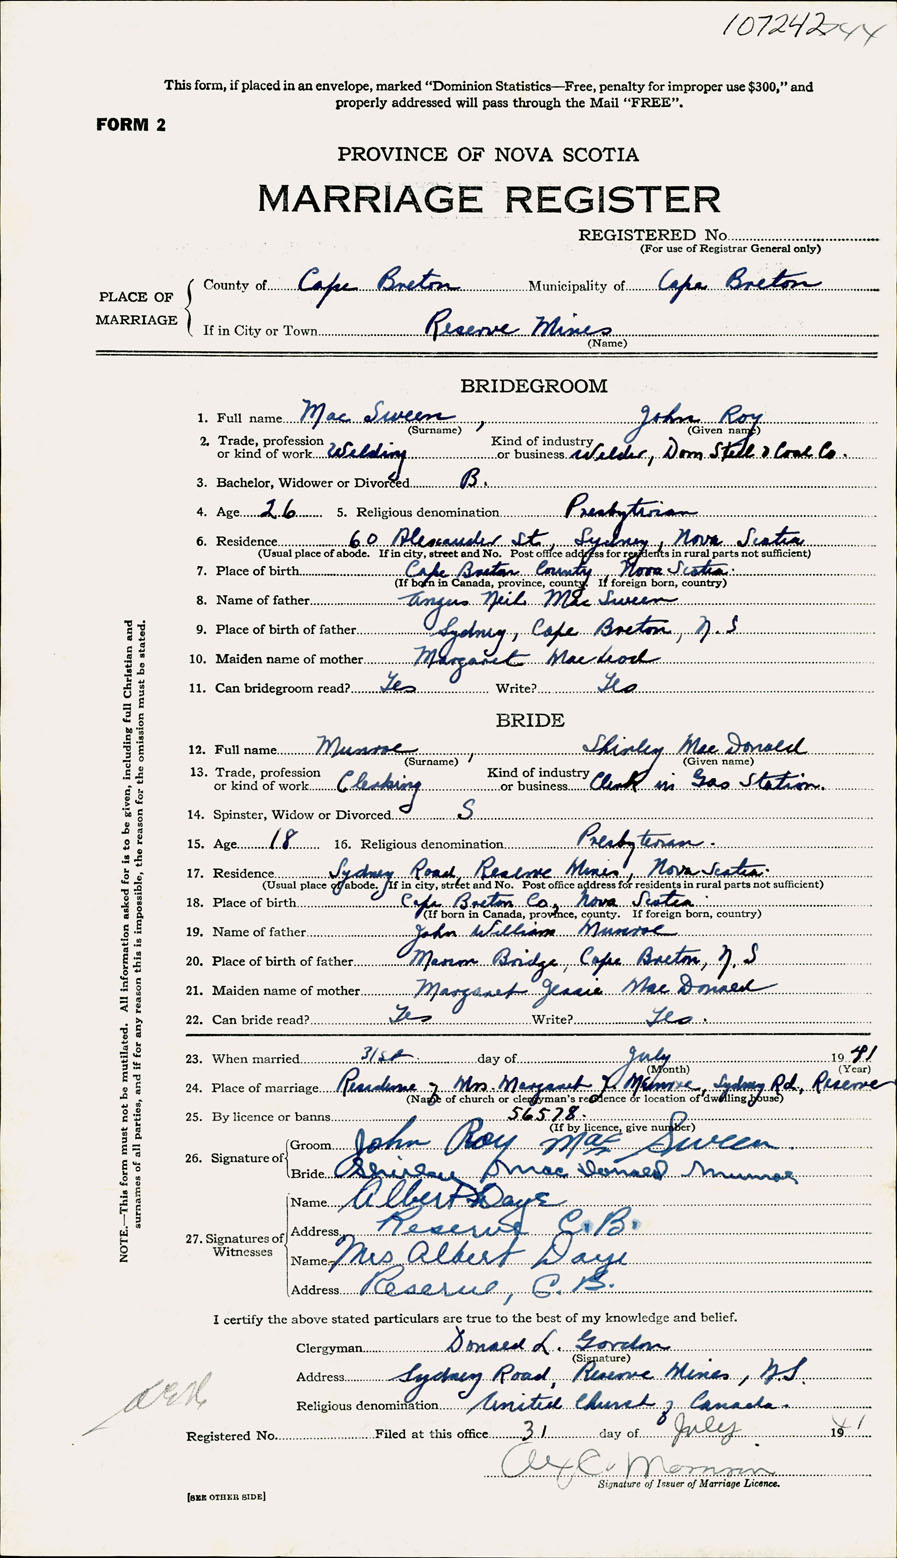 107242
This form, if placed in an envelope, marked “Dominion Statistics—Free, penalty for improper use $300,” and
properly addressed will pass through the Mail “FREE”.
FORM 2
PROVINCE OF NOVA SCOTIA
MARRIAGE REGISTER
REGISTERED No.
(For use of Registrar General only)
PLACE OF MARRIAGE
County of Cape Breton Municipality of Cape Breton
If in City or Town Reserve Mines
(Name)
BRIDEGROOM
1. Full name Mac Sween, John Roy
(Surname) (Given name)
2. Trade, profession or kind of work Welding Kind of industry or business Welder, Dom Steel & Coal Co.
3. Bachelor, Widower or Divorced B.
4. Age 26 5. Religious denomination Presbyterian
6. Residence 60 Alexander St, Sydney, Nova Scotia
(Usual place of abode. If in city, street and No. Post office address for residents in rural parts not sufficient)
7. Place of birth Cape Breton County, Nova Scotia.
(If born in Canada, province, county. If foreign born, country)
8. Name of father Angus Neil Mac Sween
9. Place of birth of father Sydney, Cape Breton, N.S
10. Maiden name of mother Margaret MacLeod
11. Can bridegroom read? Yes Write? Yes
BRIDE
12. Full name Munroe, Shirley MacDonald
(Surname) (Given name)
13. Trade, profession or kind of work Clerking Kind of industry or business Clerk in Gas Station.
14. Spinster, Widow or Divorced S
15. Age 18 16. Religious denomination Presbyterian.
17. Residence Sydney Road, Reserve Mines, Nova Scotia.
(Usual place of abode. If in city, street and No. Post office address for residents in rural parts not sufficient)
18. Place of birth Cape Breton Co, Nova Scotia.
(If born in Canada, province, county. If foreign born, country)
19. Name of father John William Munroe
20. Place of birth of father Marion Bridge, Cape Breton, N.S
21. Maiden name of mother Margaret Jessie MacDonald
22. Can bride read? Yes Write? Yes.
23. When married 31st day of July 1941
(Month) (Year)
24. Place of marriage Residence of Mrs. Margaret J. Munroe, Sydney Rd., Reserve
(Name of church or clergyman's residence or location of dwelling house)
25. By licence or banns 56578.
(If by licence, give number)
26. Signature of Groom John Roy Mac Sween
Bride Shirley MacDonald Munroe
27. Signatures of Witnesses
Name Albert Daye
Address Reserve C.B.
Name Mrs Albert Daye
Address Reserve, C.B.
I certify the above stated particulars are true to the best of my knowledge and belief.
Clergyman Donald L. Gordon
(Signature)
Address Sydney Road, Reserve Mines, N.S.
Religious denomination United Church of Canada.
Registered No. Filed at this office 31 day of July 1941
Alex C. Morrison
Signature of Issuer of Marriage Licence.
[SEE OTHER SIDE]
NOTE.—This form must not be mutilated. All information asked for is to be given, including full Christian and
surnames of all parties, and if for any reason this is impossible, the reason for the omission must be stated.